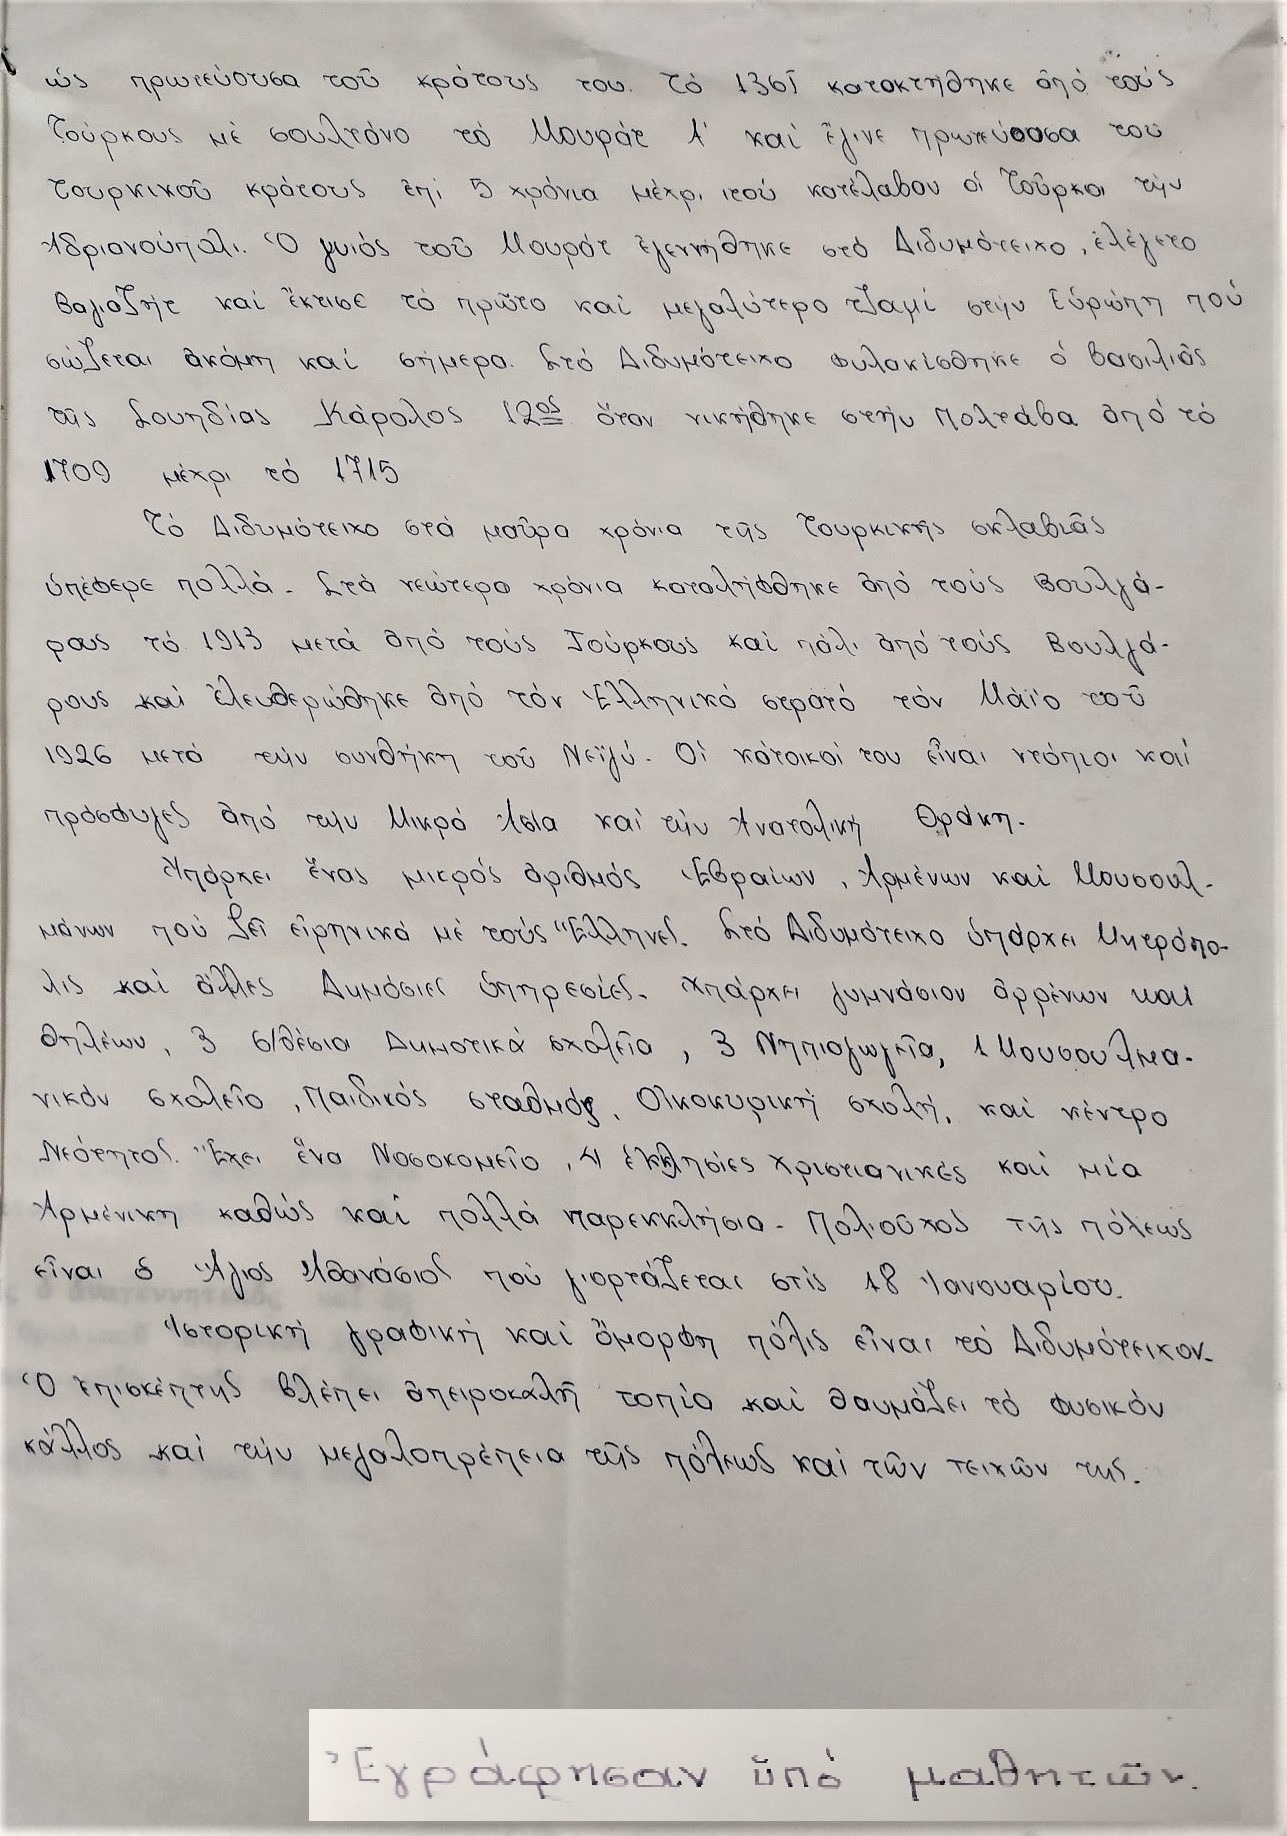 ὡς πρωτεύουσα τοῦ κράτους του. Τό 1361 κατακτήθηκε ἀπό τούς
Τούρκους μέ σουλτάνο τό Μουράτ Α' καί ἔγινε πρωτεύουσα του
τουρκικοῦ κράτους ἐπί 5 χρόνια μέχρι πού κατέλαβον οἱ Τοῦρκοι τήν
Ἀδριανούπολι. Ὁ γυιός τοῦ Μουράτ ἐγεννήθηκε στό Διδυμότειχο, ἐλέγετο
Βαγιαζήτ καί ἔκτισε τό πρῶτο καί μεγαλύτερο τζαμί στήν Εὐρώπη πού
σώζεται ἀκόμη καί σήμερα. Στό Διδυμότειχο φυλακίσθηκε ὁ βασιλιᾶς
τῆς Σουηδίας Κάρολος 12ος ὅταν νικήθηκε στήν Πολτάβα ἀπό τό
1709 μέχρι τό 1715
Τό Διδυμότειχο στά μαῦρα χρόνια τῆς Τουρκικῆς σκλαβιᾶς
ὑπέφερε πολλά. Στά νεώτερα χρόνια καταλήφθηκε ἀπό τούς Βουλγά-
ρους τό 1913 μετά ἀπό τούς Τούρκους καί πάλι ἀπό τούς Βουλγά-
ρους καί ἐλευθερώθηκε ἀπό τόν Ἑλληνικό στρατό τόν Μάϊο τοῦ
1926 μετά τήν συνθήκη τοῦ Νεϊγύ. Οἱ κάτοικοί του εἶναι ντόπιοι καί
πρόσφυγες ἀπό τήν Μικρά Ἀσία καί τήν Ἀνατολική Θράκη.
Ὑπάρχει ἕνας μικρός ἀριθμός Ἑβραίων, Ἀρμένων καί Μουσουλ-
μάνων πού ζεῖ εἰρηνικά μέ τούς Ἕλληνες. Στό Διδυμότειχο ὑπάρχει Μητρόπο-
λις καί ἄλλες Δημόσιες ὑπηρεσίες. Ὑπάρχει γυμνάσιον ἀρρένων και
θηλέων, 3 6/θέσια Δημοτικά σχολεῖα, 3 Νηπιαγωγεῖα, 1 Μουσουλμα-
νικόν σχολεῖο, Παιδικός σταθμός, Οἰκοκυρική σχολή, καί κέντρο
Νεότητος. Ἔχει ἕνα Νοσοκομεῖο, 4 ἐκκλησίες χριστιανικές καί μία
Ἀρμένικη καθώς καί πολλά παρεκκλήσια. Πολιοῦχος τῆς πόλεως
εἶναι ὁ Ἅγιος Ἀθανάσιος πού γιορτάζεται στίς 18 Ἰανουαρίου.
Ἱστορική γραφική καί ὄμορφη πόλις εἶναι τό Διδυμότειχον.
Ὁ ἐπισκέπτης βλέπει ἀπειροκαλῆ τοπία καί θαυμάζει τό φυσικόν
κάλλος καί τήν μεγαλοπρέπεια τῆς πόλεως καί τῶν τειχῶν της.
Ἐγράφησαν ὑπό μαθητῶν.